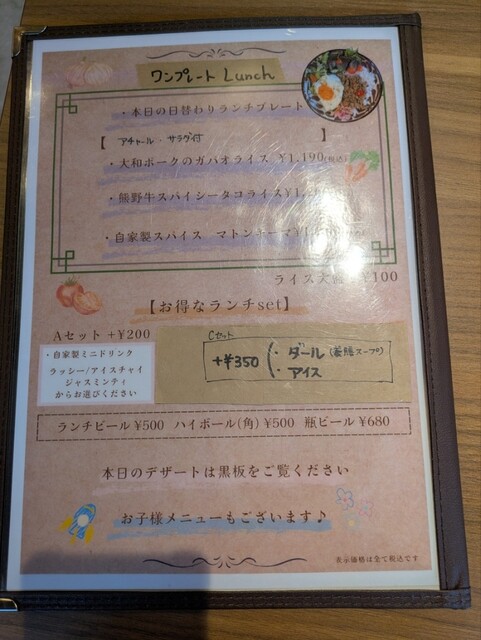 ワンプレート Lunch
・本日の日替わりランチプレート
【 アチャール・サラダ付 】
・大和ポークのガパオライス ¥1,190(税込)
・熊野牛スパイシータコライス ¥1,
・自家製スパイス マトンキーマ ¥1,
ライス大盛 ¥100
【お得なランチset】
Aセット +¥200
・自家製ミニドリンク
ラッシー/アイスチャイ
ジャスミンティ
からお選びください
Cセット
+¥350
・ダール(スープ)
・アイス
ランチビール ¥500 ハイボール(角) ¥500 瓶ビール ¥680
本日のデザートは黒板をご覧ください
お子様メニューもございます♪
表示価格は全て税込です